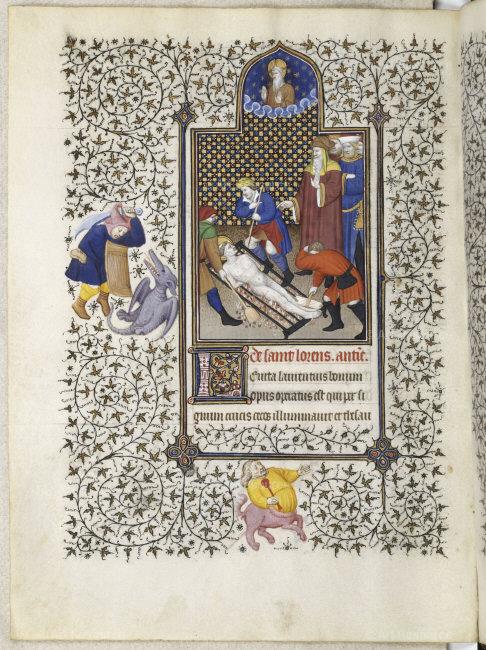 De saint lorens. anñe.
Leuita laurentius bonum
opus opratus est qui per si
gnum crucis cecos illuminauit et thesau